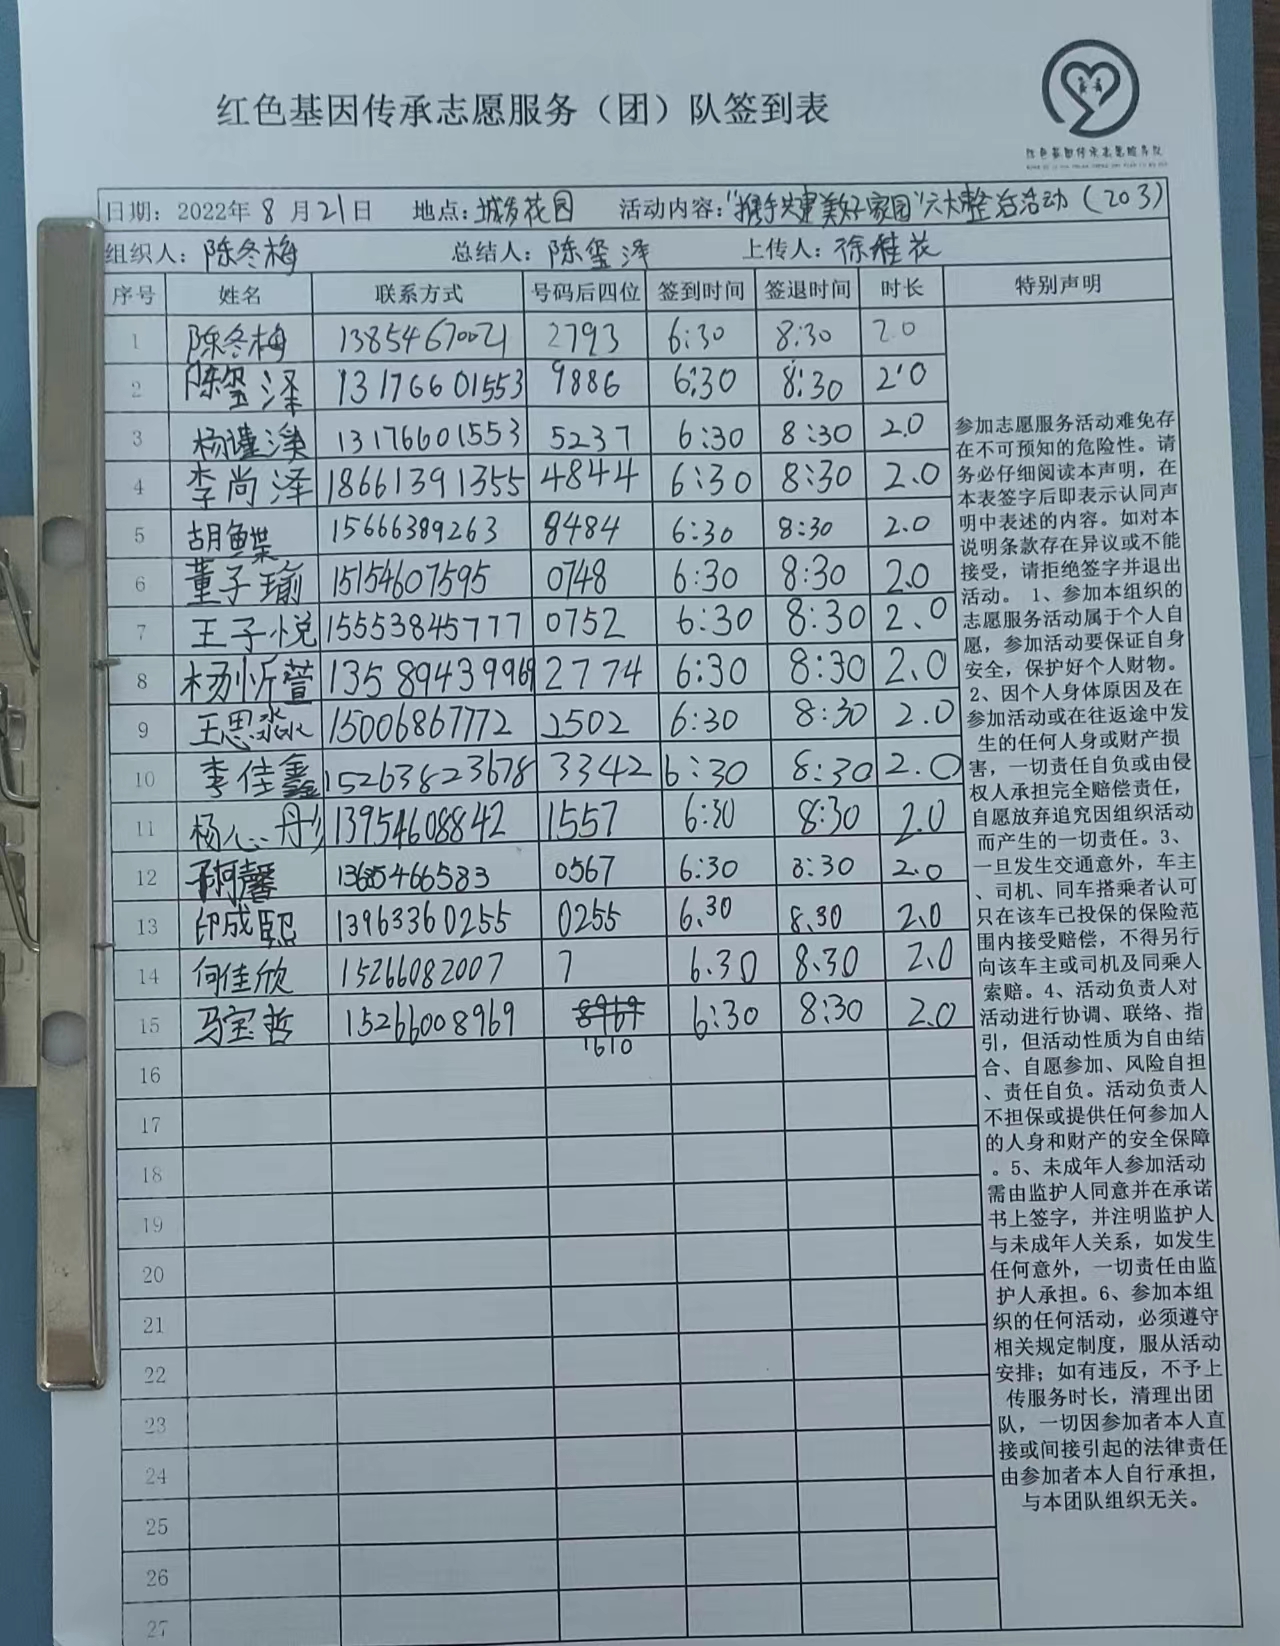 红色基因传承志愿服务（团）队签到表
红色基因传承志愿服务队
日期：2022年8月21日 地点：城发花园 活动内容："携手共建美好家园"六大整治活动（203）
组织人：陈冬梅 总结人：陈玺泽 上传人：徐雅花
序号 姓名 联系方式 号码后四位 签到时间 签退时间 时长 特别声明
1 陈冬梅 13854670021 2793 6:30 8:30 2.0
2 陈玺泽 13176601553 9886 6:30 8:30 2.0
3 杨谨溱 13176601553 5237 6:30 8:30 2.0
4 李尚泽 18661391355 4844 6:30 8:30 2.0
5 胡鲽 15666389263 8484 6:30 8:30 2.0
6 董子瑜 15154607595 0748 6:30 8:30 2.0
7 王子悦 15553845777 0752 6:30 8:30 2.0
8 杨忻萱 13589439969 2774 6:30 8:30 2.0
9 王思淼 15006867772 2502 6:30 8:30 2.0
10 李佳鑫 15263823678 3342 6:30 8:30 2.0
11 杨心丹 13954608842 1557 6:30 8:30 2.0
12 馨 13685466583 0567 6:30 8:30 2.0
13 印成熙 13963360255 0255 6.30 8.30 2.0
14 何佳欣 15266082007 7 6.30 8.30 2.0
15 马宝哲 15266008969 8969 6:30 8:30 2.0
1610
16
17
18
19
20
21
22
23
24
25
26
27
参加志愿服务活动难免存
在不可预知的危险性。请
务必仔细阅读本声明，在
本表签字后即表示认同声
明中表述的内容。如对本
说明条款存在异议或不能
接受，请拒绝签字并退出
活动。 1、参加本组织的
志愿服务活动属于个人自
愿，参加活动要保证自身
安全，保护好个人财物。
2、因个人身体原因及在
参加活动或在往返途中发
生的任何人身或财产损
害，一切责任自负或由侵
权人承担完全赔偿责任，
自愿放弃追究因组织活动
而产生的一切责任。3、
一旦发生交通意外，车主
、司机、同车搭乘者认可
只在该车已投保的保险范
围内接受赔偿，不得另行
向该车主或司机及同乘人
索赔。4、活动负责人对
活动进行协调、联络、指
引，但活动性质为自由结
合、自愿参加、风险自担
、责任自负。活动负责人
不担保或提供任何参加人
的人身和财产的安全保障
。5、未成年人参加活动
需由监护人同意并在承诺
书上签字，并注明监护人
与未成年人关系，如发生
任何意外，一切责任由监
护人承担。6、参加本组
织的任何活动，必须遵守
相关规定制度，服从活动
安排；如有违反，不予上
传服务时长，清理出团
队，一切因参加者本人直
接或间接引起的法律责任
由参加者本人自行承担，
与本团队组织无关。